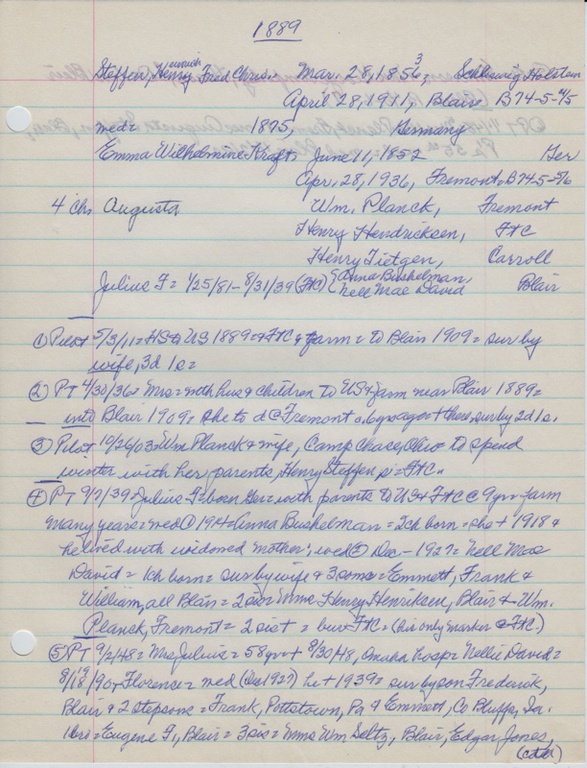 1889
Steffen, Henry Fred Chris. Mar. 28, 1856 3 = Schleswig Holstein
Heinrich
April 28, 1911, Blair B74-5-4/5
med = 1875, Germany
Emma Wilhelmine Kraft June 11, 1852 Ger
Apr. 28, 1936, Fremont = B74-5-5/6
4 Chr Augusta Wm. Planck, Fremont
Henry Hendricksen, FtC
Henry Tietgen, Carroll
Julius F = 1/25/81 - 8/31/39 (FtC) { Anna Bushelman, Blair
Nell Mae David
① Pilot 5/3/11 = HS to US 1889 = FtC + farm = to Blair 1909 = sur by
wife, 3d 1s =
② PT 4/30/36 = Mrs = with hus & children to US & farm near Blair 1889 =
into Blair 1909 = she to d @ Fremont 6 yrs ago + there, sur by 2d 1s.
③ Pilot 10/26/03 = Wm Planck & wife, Camp Chace, Ohio to spend
winter with her parents, Henry Steffen, s = FtC.
④ PT 9/7/39 = Julius F = born Ger = with parents to US & FtC @ 9 yrs = farm
many years = med ① 1914 = Anna Bushelman = 2ch born = she + 1918 &
he lived with widowed mother; wed ② Dec - 1927 = Nell Mae
David = 1ch born = sur by wife & 3 sons = Emmett, Frank &
William, all Blair = 2 sis = Mmes Henry Henriksen, Blair & Wm.
Planck, Fremont = 2 sist = bur FtC = (his only marker @ FtC)
⑤ PT 9/2/48 = Mrs Julius = 58 yrs + 8/30/48, Omaha hosp = Nellie David =
8/19/90 Florence = med (Dec 1927) he + 1939 = sur by son Frederick,
Blair & 2 stepsons = Frank, Pottstown, Pa & Emmett, Co Bluffs, Ia.
1bro = Eugene F, Blair = 3 sis = Mmes Wm Seltz, Blair, Edgar Jones,
(ctd)